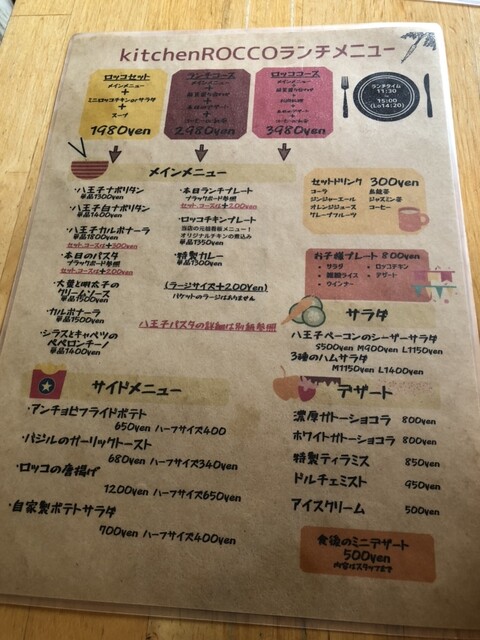 kitchenROCCOランチメニュー
ロッコセット
メインメニュー
+
ミニロッコチキンorサラダ
+
スープ
1980yen
ランチコース
メインメニュー
+
+
+
2980yen
ロッココース
メインメニュー
+
+
+
3980yen
ランチタイム
11:30
~
15:00
(Lo14:20)
メインメニュー
・八王子ナポリタン
単品1300yen
・八王子白ナポリタン
単品1400yen
・八王子カルボナーラ
単品1800yen
セット,コースは+300yen
・本日のパスタ
ブラックボード参照
セット,コースは+200yen
・大葉と明太子の
クリームソース
単品1500yen
・カルボナーラ
単品1500yen
・シラスとキャベツの
ペペロンチーノ
単品1400yen
・本日ランチプレート
ブラックボード参照
セット,コースは+200yen
・ロッコチキンプレート
当店の元祖看板メニュー!
オリジナルチキンの煮込み
単品1350yen
・特製カレー
単品1300yen
(ラージサイズ+200yen)
バケットのラージはありません
八王子パスタの詳細は別紙参照
セットドリンク 300yen
コーラ
ジンジャーエール
オレンジジュース
グレープフルーツ
烏龍茶
ジャスミン茶
コーヒー
お子様プレート 800yen
・サラダ
・ロッコチキン
・デザート
・ウインナー
サラダ
八王子ベーコンのシーザーサラダ
S500yen M900yen L1150yen
3種のハムサラダ
M1150yen L1400yen
サイドメニュー
・アンチョビフライドポテト
650yen ハーフサイズ400
・バジルのガーリックトースト
680yen ハーフサイズ340yen
・ロッコの唐揚げ
1200yen ハーフサイズ650yen
・自家製ポテトサラダ
700yen ハーフサイズ400yen
デザート
濃厚ガトーショコラ 800yen
ホワイトガトーショコラ 800yen
特製ティラミス 850yen
ドルチェミスト 950yen
アイスクリーム 500yen
食後のミニデザート
500yen
内容はスタッフまで